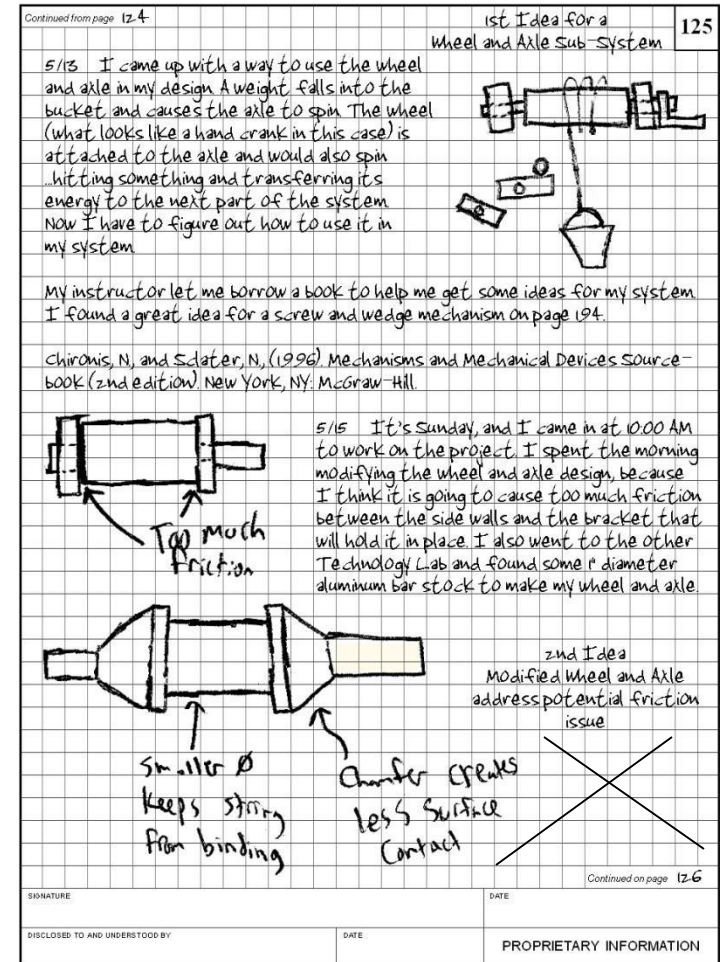 Continued from page 124
1st Idea for a
Wheel and Axle Sub-System
125
5/13 I came up with a way to use the wheel
and axle in my design. A weight falls into the
bucket and causes the axle to spin. The wheel
(what looks like a hand crank in this case) is
attached to the axle and would also spin
...hitting something and transferring its
energy to the next part of the system.
Now I have to figure out how to use it in
my system.
My instructor let me borrow a book to help me get some ideas for my system.
I found a great idea for a screw and wedge mechanism on page 194.
Chironis, N, and Sclater, N., (1996). Mechanisms and Mechanical Devices Source-
book (2nd edition). New York, NY: McGraw-Hill.
5/15 It's Sunday, and I came in at 10:00 AM
to work on the project. I spent the morning
modifying the wheel and axle design, because
I think it is going to cause too much friction
between the side walls and the bracket that
will hold it in place. I also went to the other
Technology Lab and found some 1" diameter
aluminum bar stock to make my wheel and axle.
Too much
friction
2nd Idea
Modified Wheel and Axle
address potential friction
issue
Smaller Ø
Keeps string
from binding
Chamfer Creates
less Surface
Contact
Continued on page 126
SIGNATURE
DATE
DISCLOSED TO AND UNDERSTOOD BY
DATE
PROPRIETARY INFORMATION